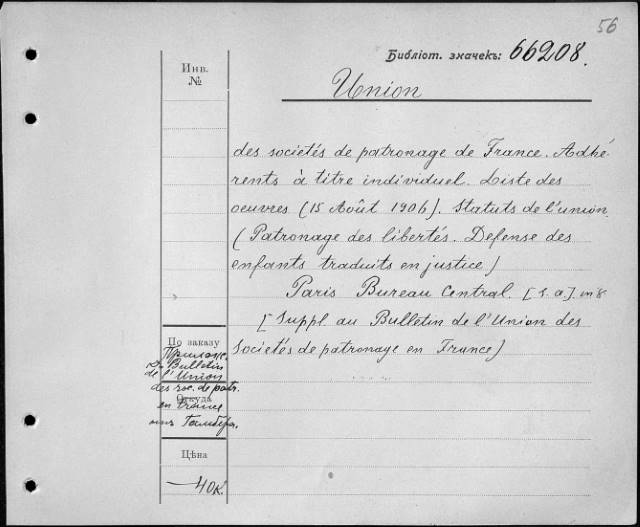 56
Библіот. значекъ: 66208.
Инв.
№
Union
des societés de patronage de France. Adhé-
rents à titre individuel. Liste des
oeuvres (15 Août 1906). Statuts de l'union.
(Patronage des libertés. Defense des
enfants traduits en justice)
Paris Bureau Central. [S. a.] in 8
[Suppl. au Bulletin de l'Union des
Societés de patronage en France)
По заказу
Прилож.
къ Bulletin
de l'Union
des soc. de patr.
Откуда
en France
отъ Гамбера.
Цѣна
— 40 к.